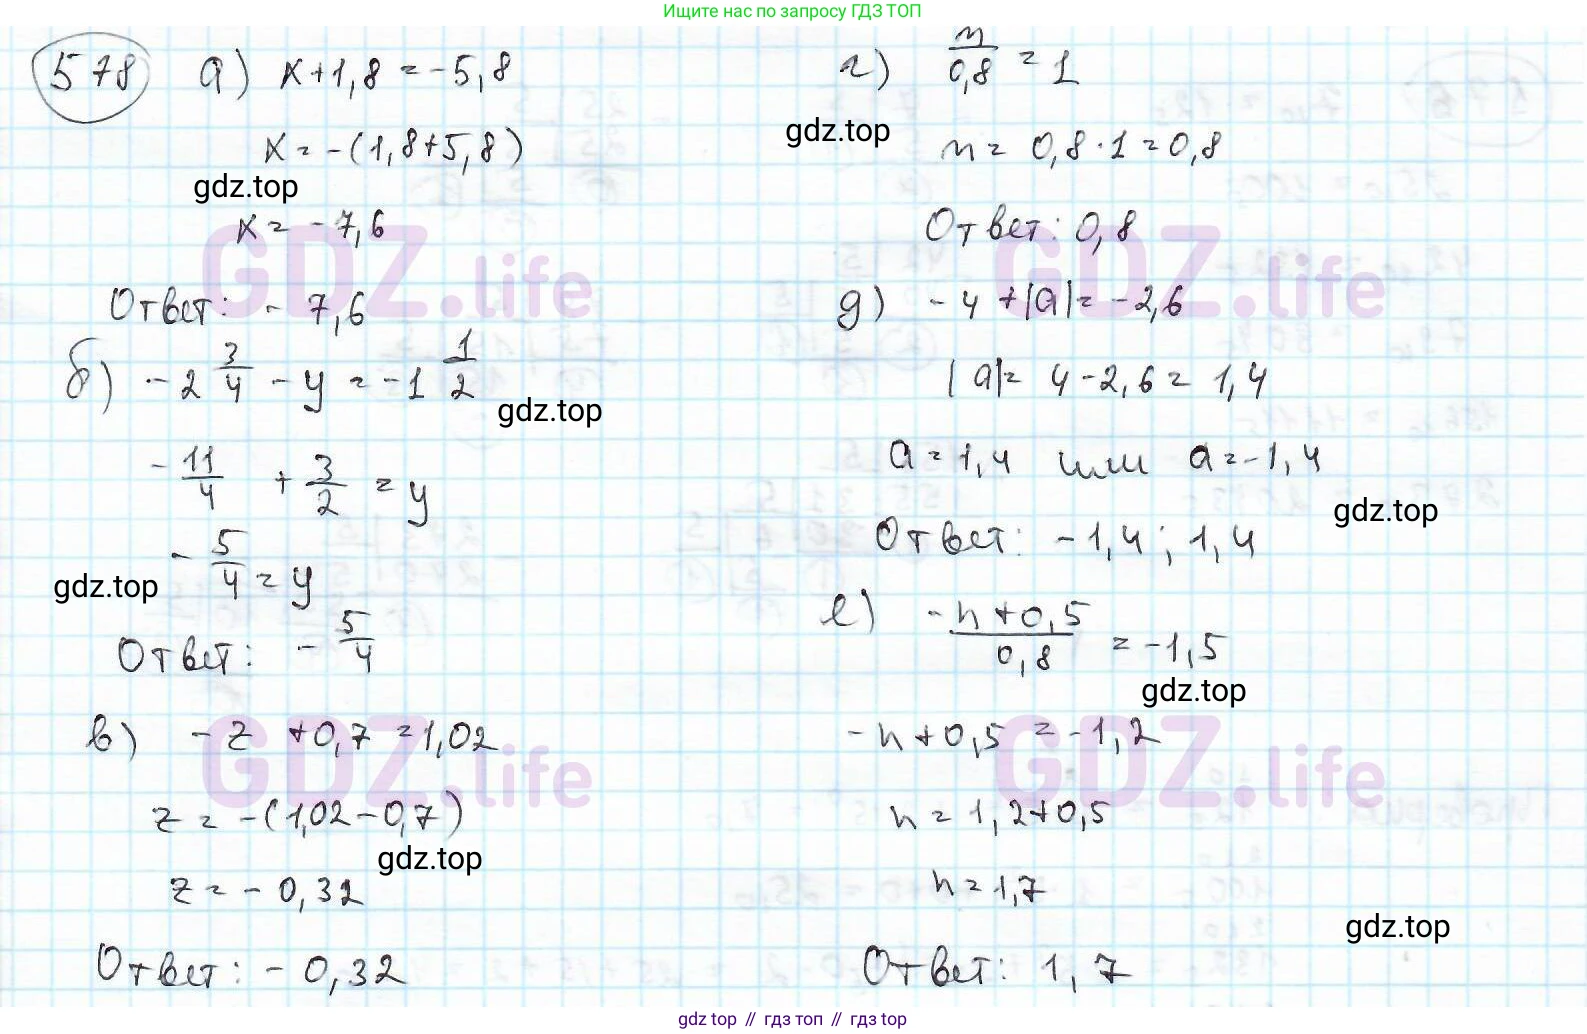 Ищите нас по запросу ГДЗ ТОП
578 а) x+1,8=-5,8
x=-(1,8+5,8)
gdz.top
x=-7,6
GDZ.life
Ответ: -7,6
б) -2 3/4 - y = -1 1/2
gdz.top
-11/4 + 3/2 = y
-5/4 = y
gdz.top
Ответ: -5/4
в) -z+0,7=1,02
GDZ.life
z=-(1,02-0,7)
gdz.top
z=-0,32
Ответ: -0,32
г) m/0,8 = 1
gdz.top
m=0,8·1=0,8
Ответ: 0,8
GDZ.life
д) -4+|a|=-2,6
|a|=4-2,6=1,4
a=1,4 или a=-1,4
gdz.top
Ответ: -1,4; 1,4
е) (-n+0,5)/0,8 = -1,5
gdz.top
-n+0,5=-1,2
GDZ.life
n=1,2+0,5
n=1,7
gdz.top
Ответ: 1,7
gdz top // гдз топ // gdz top